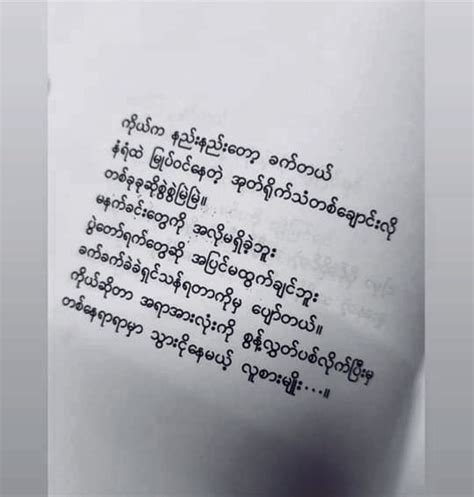 ကိုယ်က နည်းနည်းတော့ ခက်တယ်
နံရံထဲ မြှုပ်ဝင်နေတဲ့ အုတ်ရိုက်သံတစ်ချောင်းလို
တစ်ခုခုဆိုစွဲစွဲမြဲမြဲ။
မနက်ခင်းတွေကို အလိုမရှိခဲ့ဘူး
ပွဲတော်ရက်တွေဆို အပြင်မထွက်ချင်ဘူး
ခက်ခက်ခဲခဲရှင်သန်ရတာကိုမှ ပျော်တယ်။
ကိုယ်ဆိုတာ အရာအားလုံးကို စွန့်လွှတ်ပစ်လိုက်ပြီးမှ
တစ်နေရာရာမှာ သွားငိုနေမယ့် လူစားမျိုး...။